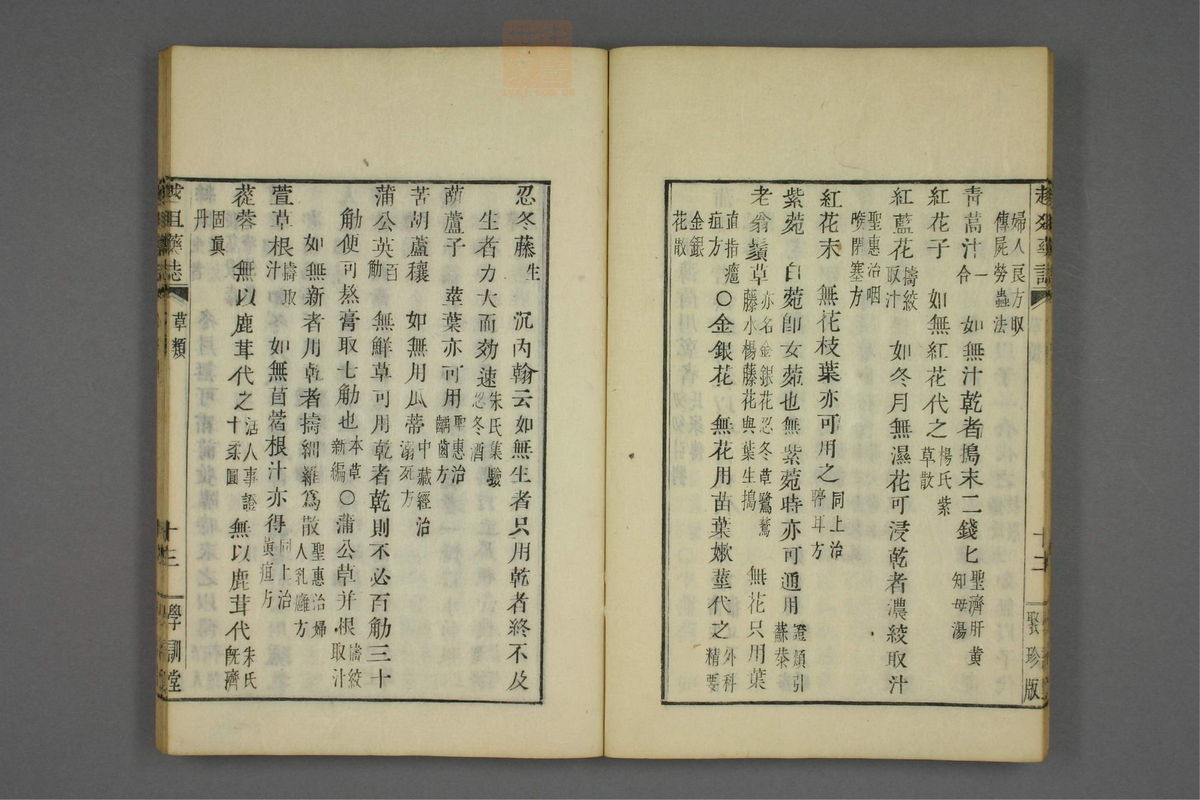 婦人良方取
傳屍勞蟲法
青蒿汁一合 如無汁乾者搗末二錢匕聖濟肝黄知母湯
紅花子 如無紅花代之楊氏紫草散
紅藍花擣絞取汁 如冬月無濕花可浸乾者濃絞取汁
聖惠治咽喉閉塞方
紅花末 無花枝葉亦可用之同上治聤耳方
紫菀 白菀卽女菀也無紫菀時亦可通用證類引蘇恭
老翁鬚草亦名金銀花忍冬草鷺鷥藤水楊藤花與葉生搗 無花只用葉
直指癰疽方 ○金銀花 無花用苗葉嫰莖代之外科精要
金銀花散
聚珍版
忍冬藤生 沉內翰云如無生者只用乾者終不及
生者力大而効速朱氏集驗忍冬酒
葫蘆子 莖葉亦可用聖惠治齲齒方
苦胡蘆穰 如無用瓜蒂中藏經治溺死方
蒲公英百觔 無鮮草可用乾者乾則不必百觔三十
觔便可熬膏取七觔也本草新編 ○蒲公草并根擣絞取汁
如無新者用乾者擣細羅爲散聖惠治婦人乳癰方
萱草根汁擣取 如無苜蓿根汁亦得同上治黄疸方
蓯蓉 無以鹿茸代之活人事證十柔圓 無以鹿茸代朱氏旣濟
固眞丹
藥志 草類 十三 學訓堂